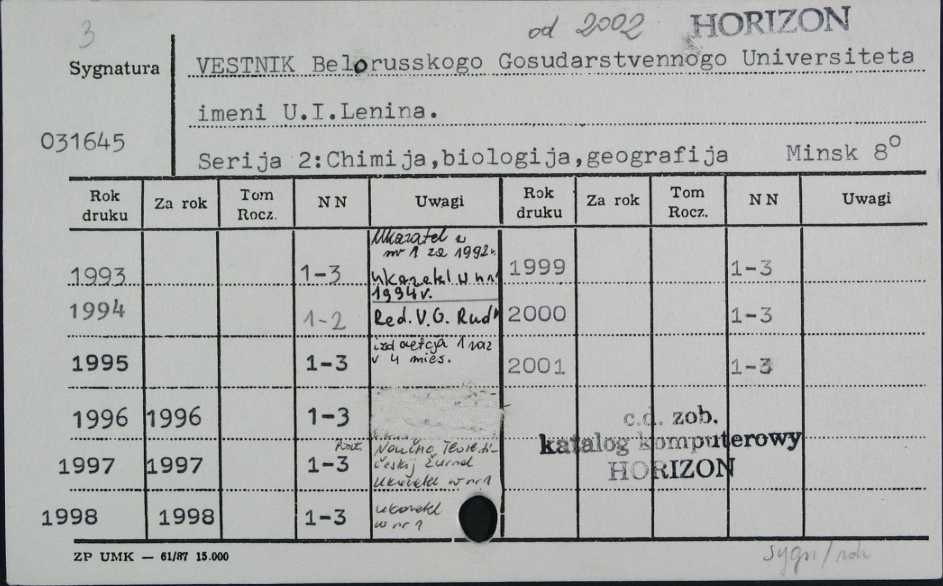 3 od 2002 HORIZON
Sygnatura VESTNIK Belorusskogo Gosudarstvennogo Universiteta
imeni U.I.Lenina.
031645
Serija 2:Chimija,biologija,geografija Minsk 8°
Rok druku Za rok Tom Rocz. NN Uwagi Rok druku Za rok Tom Rocz. NN Uwagi
Ukazatel z
nr 1 za 1992r.
1993 1-3 1999 1-3
1994r.
1994 1-2 Red. V.G. Rud 2000 1-3
1 raz
1995 1-3 v 4 mies. 2001 1-3
1996 1996 1-3 c.d. zob.
katalog komputerowy
HORIZON
1997 1997 1-3
w nr 1
1998 1998 1-3
w nr 1
ZP UMK — 61/87 15.000
sygn/rok